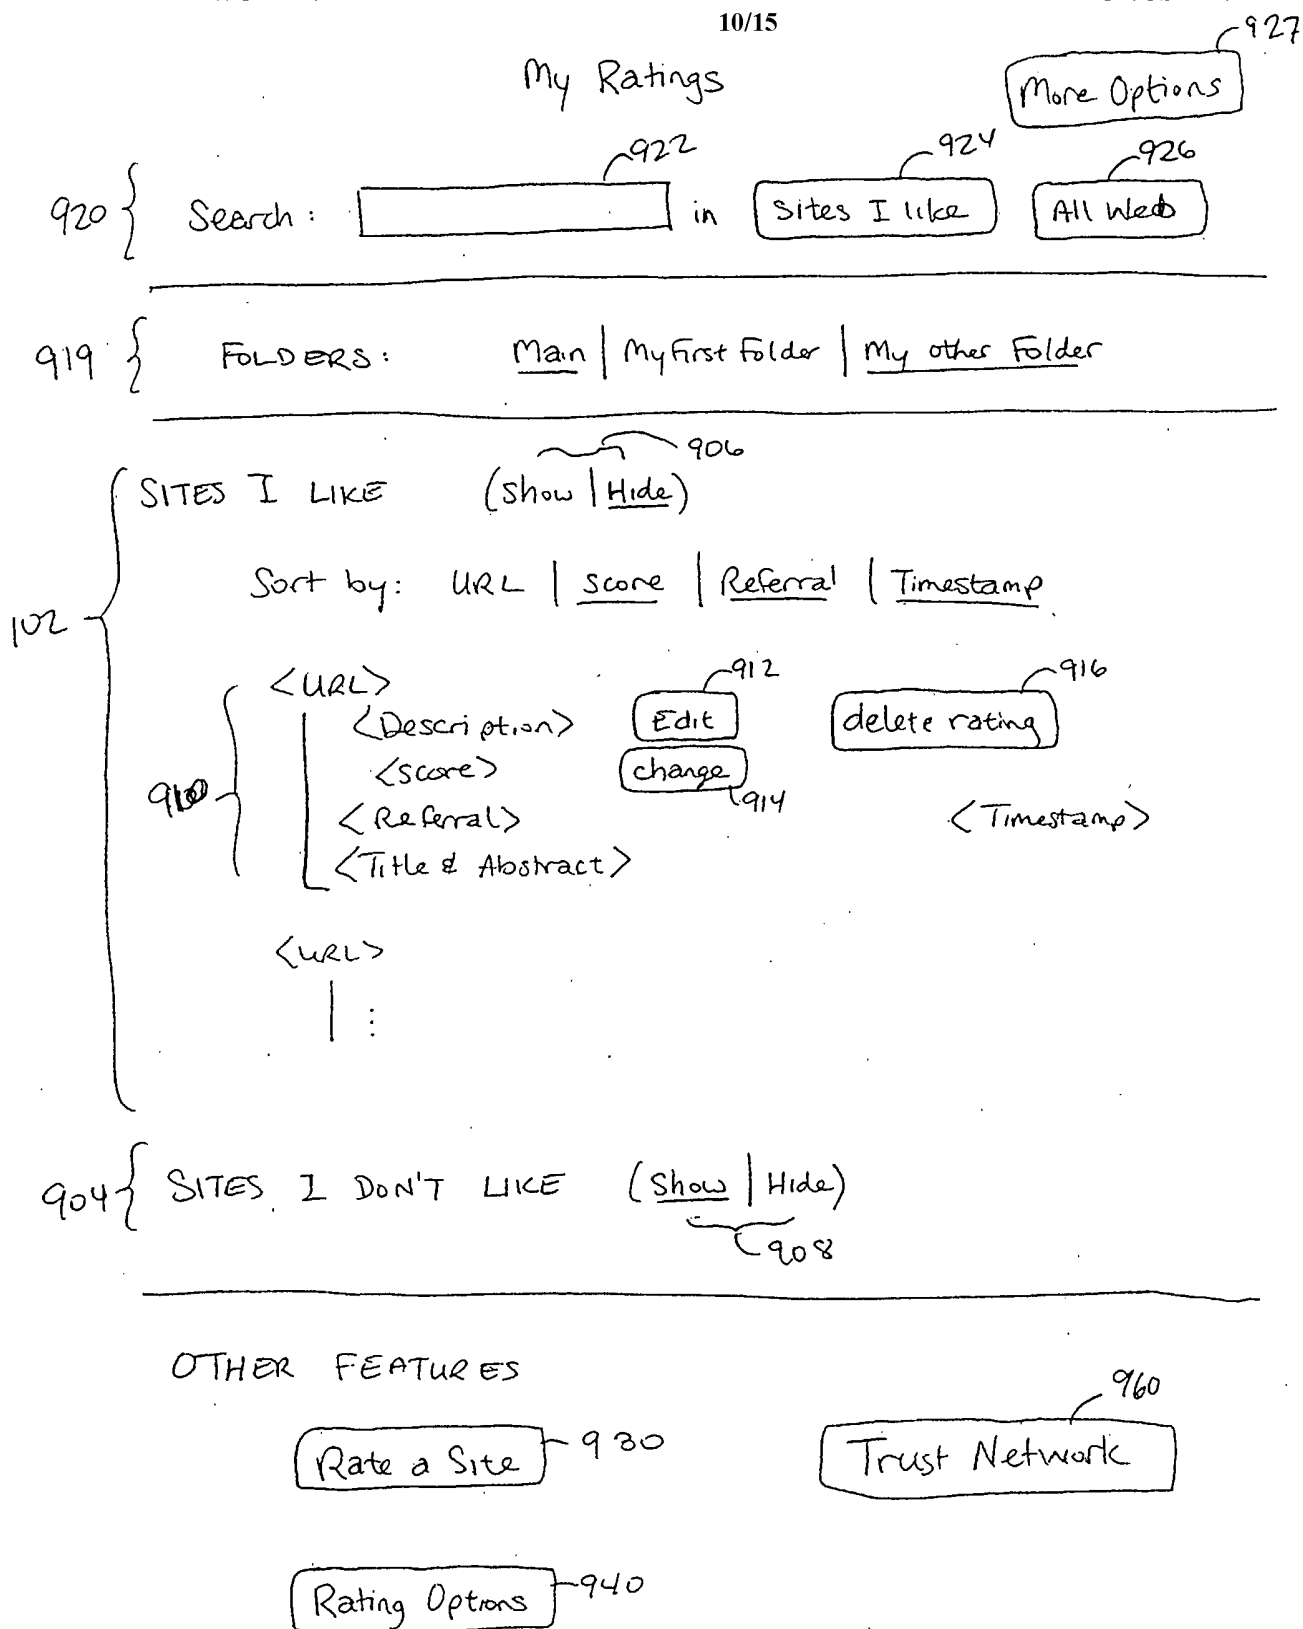 10/15
927
My Ratings
More Options
922 924 926
920 Search: in Sites I like All Web
919 FOLDERS: Main | My First Folder | My other Folder
906
SITES I LIKE (Show | Hide)
Sort by: URL | Score | Referral | Timestamp
102
912 916
<URL>
<Description> Edit delete rating
<Score> change
910 914
<Referral> <Timestamp>
<Title & Abstract>
<URL>
⋮
904 SITES I DON'T LIKE (Show | Hide)
908
OTHER FEATURES
960
Rate a Site 930 Trust Network
Rating Options 940